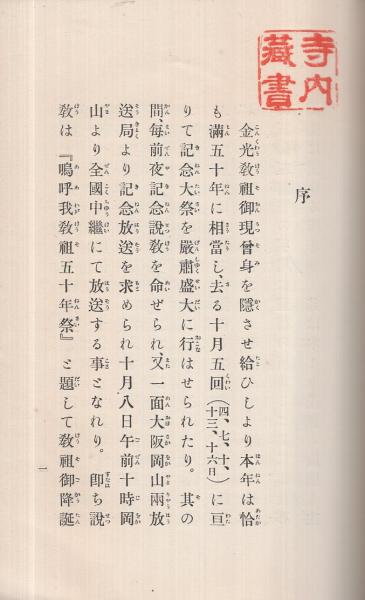 寺内
蔵書
序
金光敎祖御現曾身を隱させ給ひしより本年は恰
も滿五十年に相當し、去る十月五回(四、七、十、十三、十六日)に亘
りて記念大祭を嚴肅盛大に行はせられたり。其の
間、每前夜記念說敎を命ぜられ、又一面大阪岡山兩放
送局より記念放送を求められ十月八日午前十時岡
山より全國中繼にて放送する事となれり。卽ち說
敎は『嗚呼我敎祖五十年祭』と題して敎祖御降誕
一